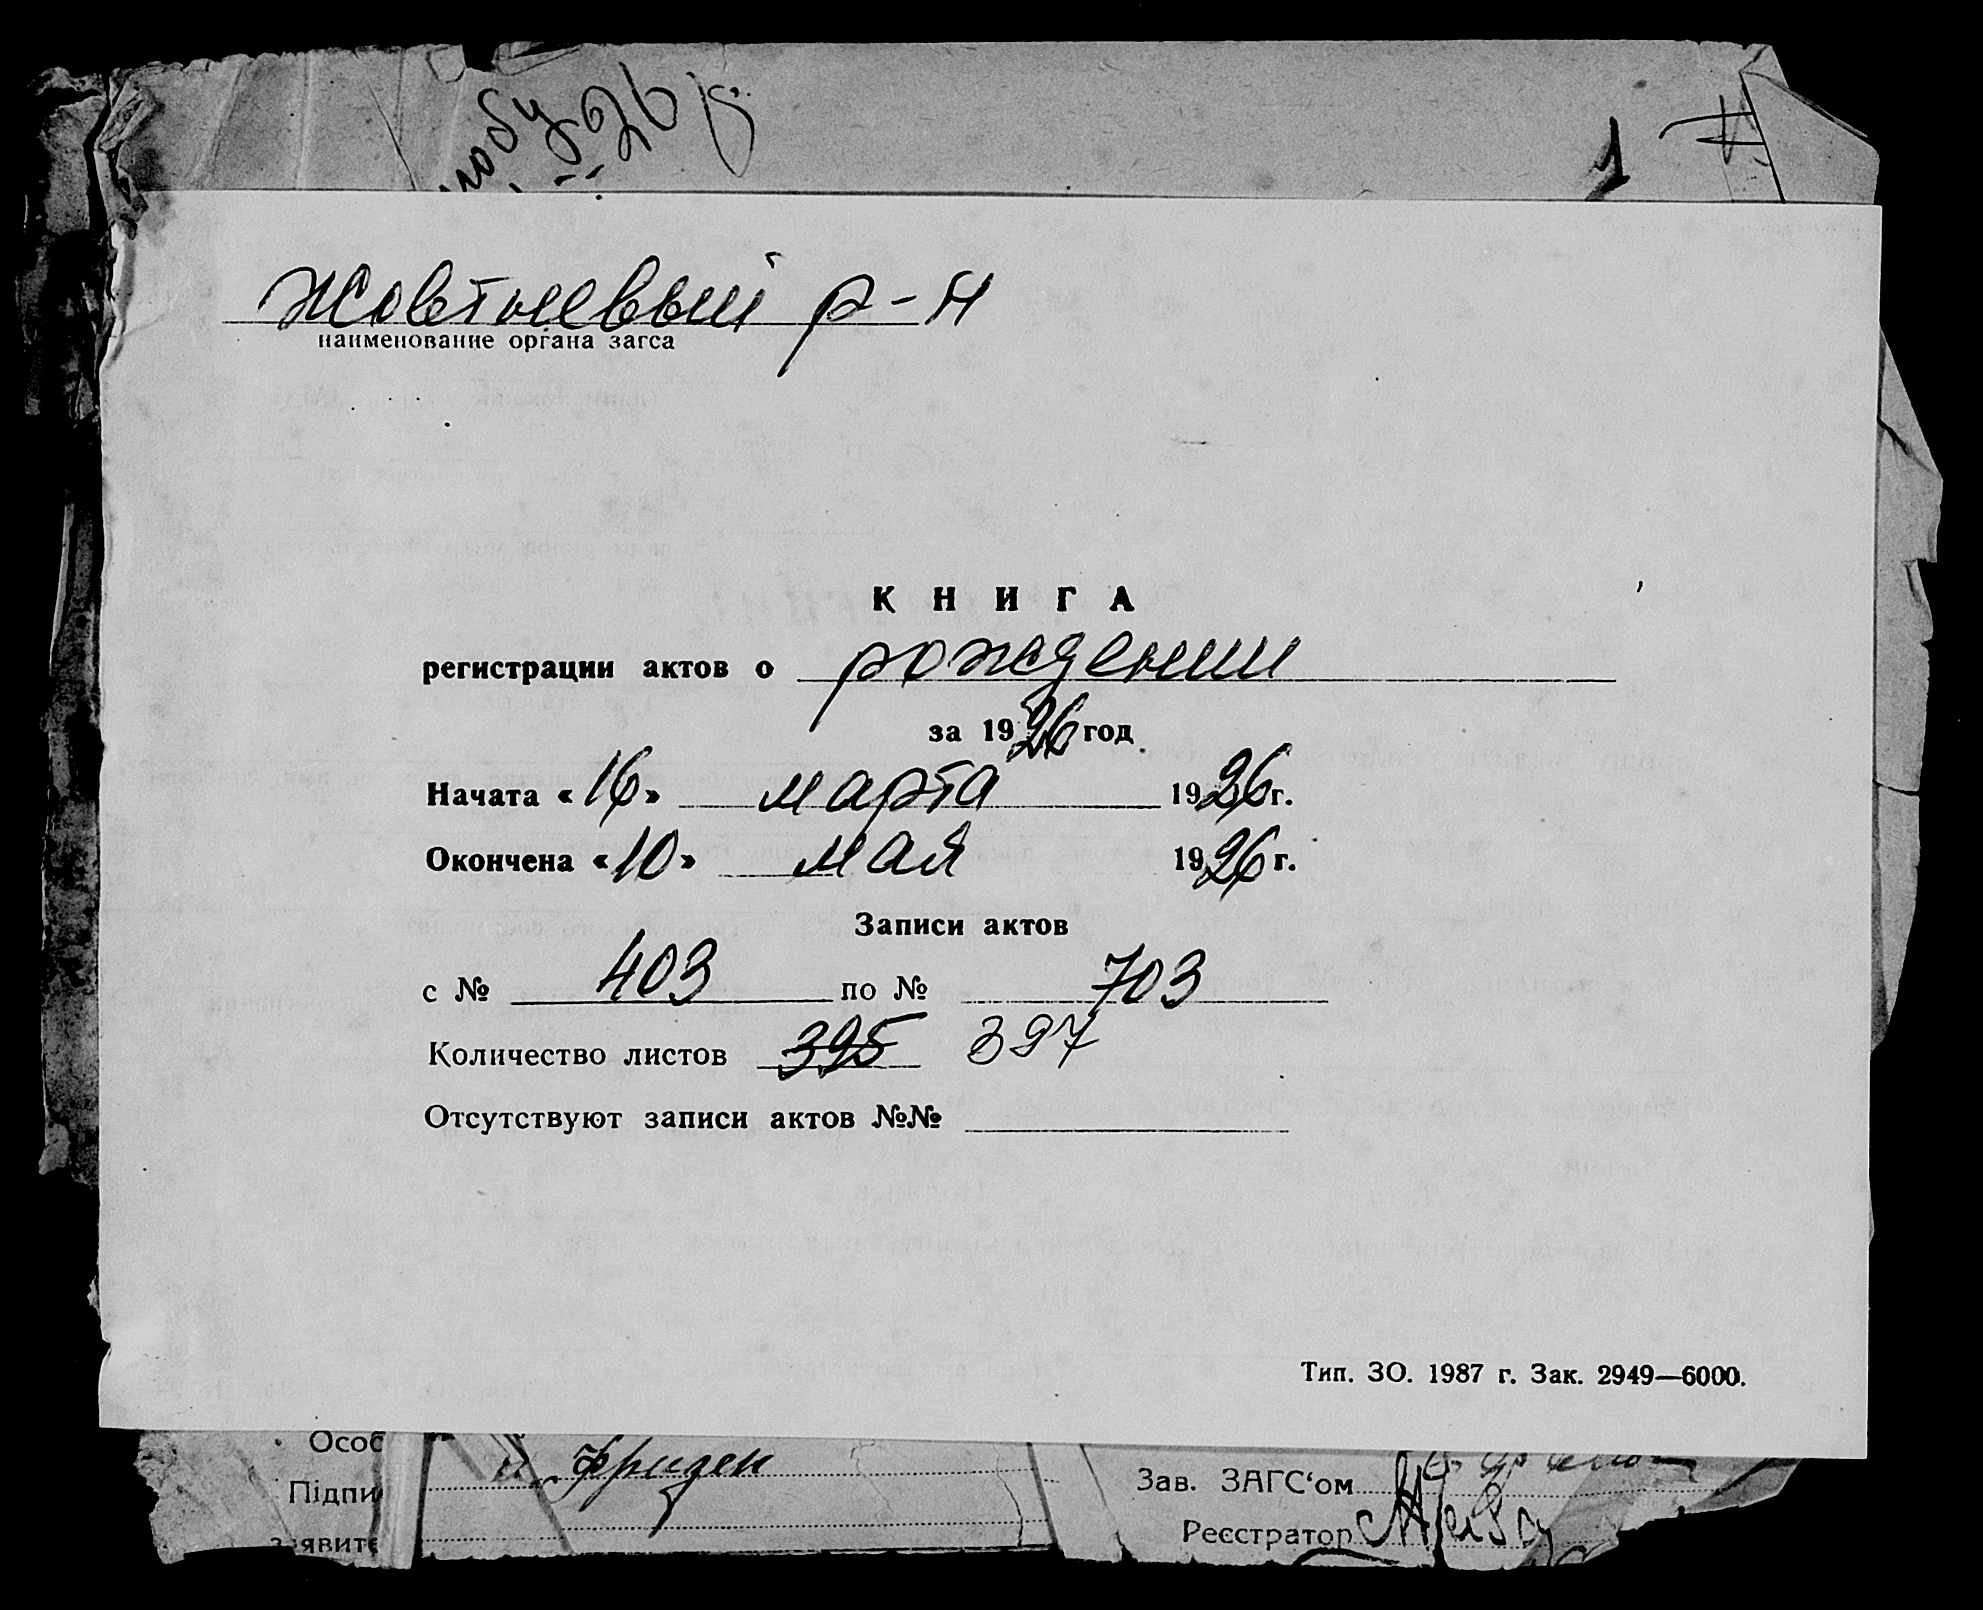 26
1
Жовтневый р-н
наименование органа загса
КНИГА
регистрации актов о рождении
за 1926 год
Начата «16» марта 1926 г.
Окончена «10» мая 1926 г.
Записи актов
с № 403 по № 703
Количество листов 395 397
Отсутствуют записи актов №№
Тип. ЗО. 1987 г. Зак. 2949—6000.
Особ
Підпи Фризен
Зав. ЗАГС‘ом
заявите
Реєстратор